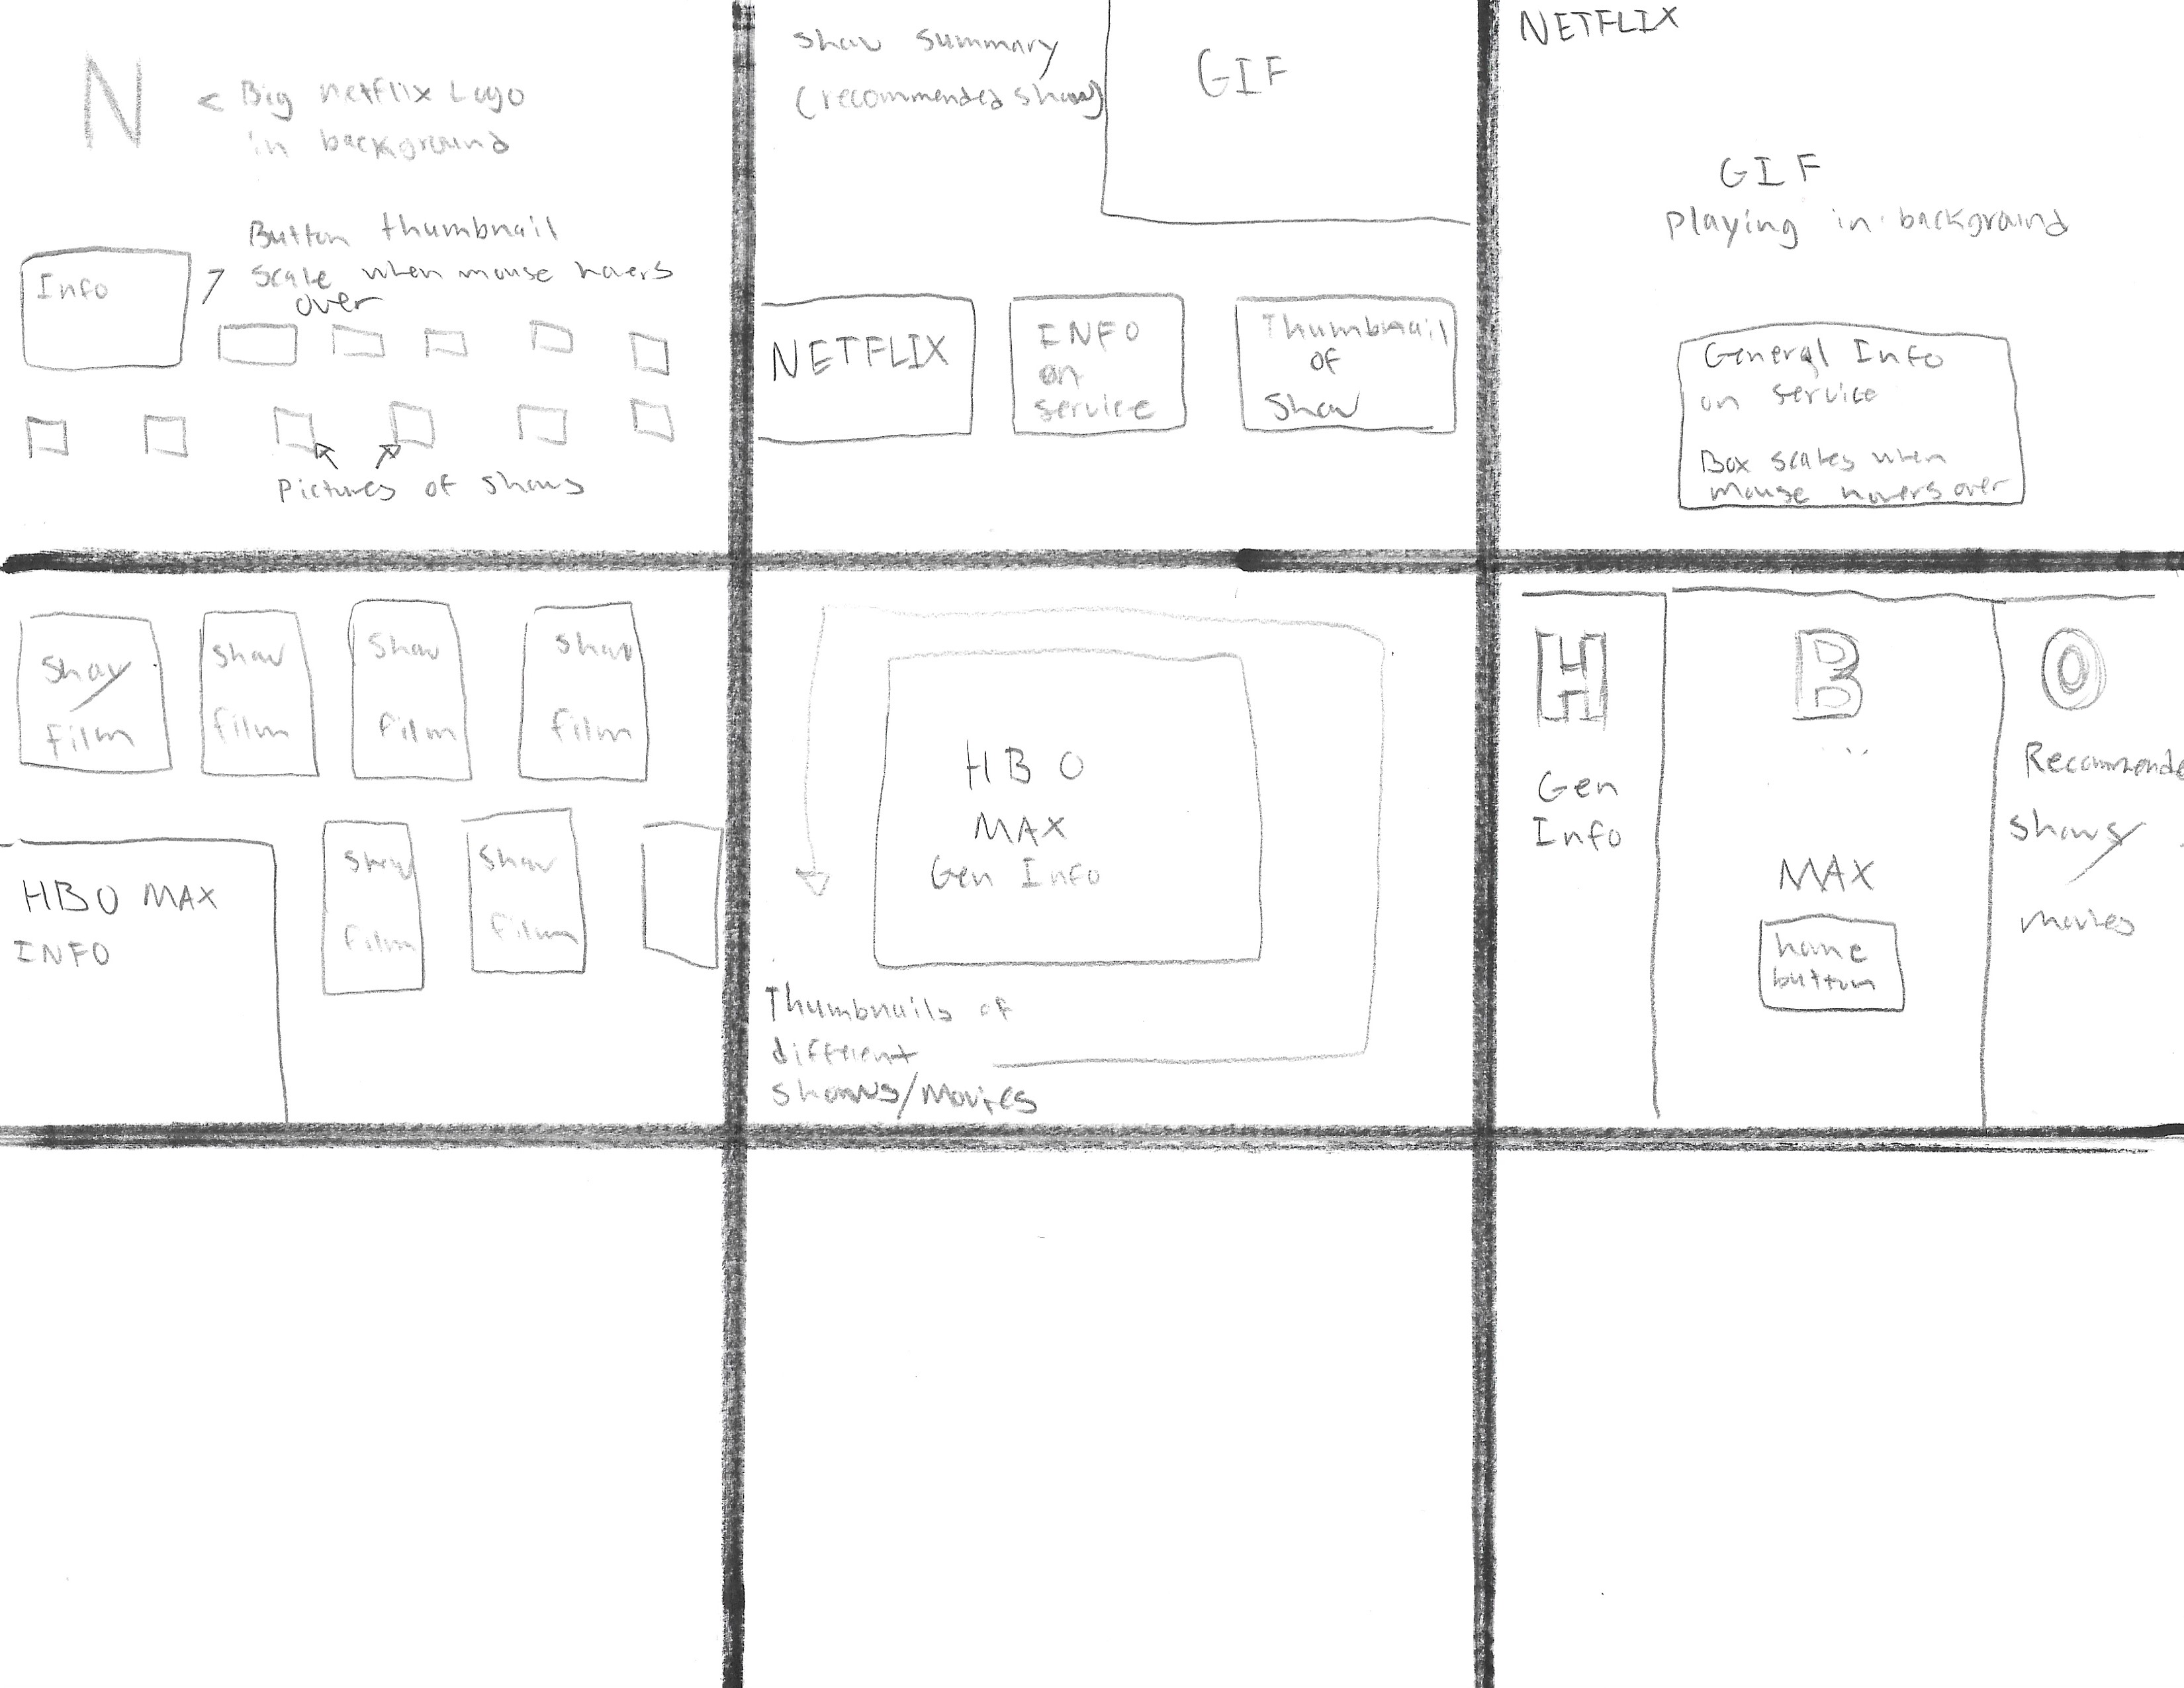 N
< Big netflix Logo
in background
Button thumbnail
scale when mouse hovers
over
Info
Pictures of shows
Show summary
(recommended show)
GIF
NETFLIX
INFO
on
service
Thumbnail
OF
Show
NETFLIX
GIF
Playing in background
General Info
on service
Box scales when
mouse hovers over
Show/
Film
Show
Film
Show
Film
Show
Film
HBO MAX
INFO
Show
Film
Show
Film
HBO
MAX
Gen Info
Thumbnails of
different
shows/movies
H
Gen
Info
B
MAX
home
button
O
Recommende
Shows/
movies